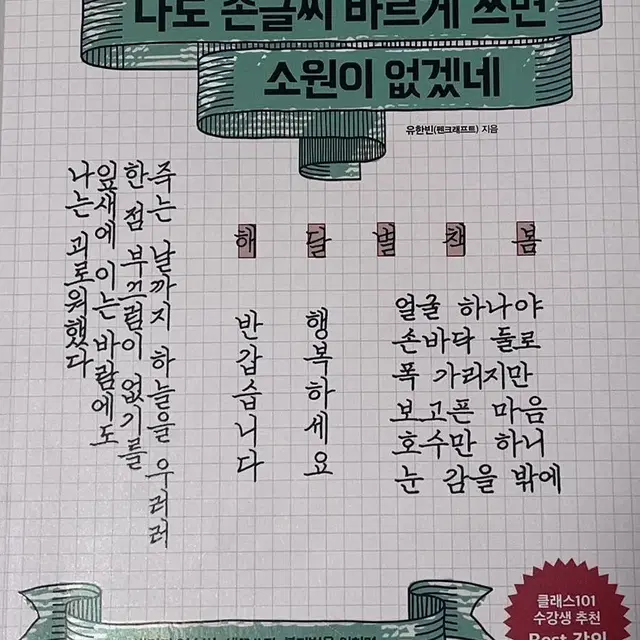 나도 손글씨 바르게 쓰면
소원이 없겠네
유한빈(펜크래프트) 지음
죽는 날까지 하늘을 우러러
한 점 부끄럼이 없기를
잎새에 이는 바람에도
나는 괴로워했다
해 달 별 책 봄
반갑습니다
행복하세요
얼굴 하나야
손바닥 둘로
폭 가리지만
보고픈 마음
호수만 하니
눈 감을 밖에
클래스101
수강생 추천
Best 강의